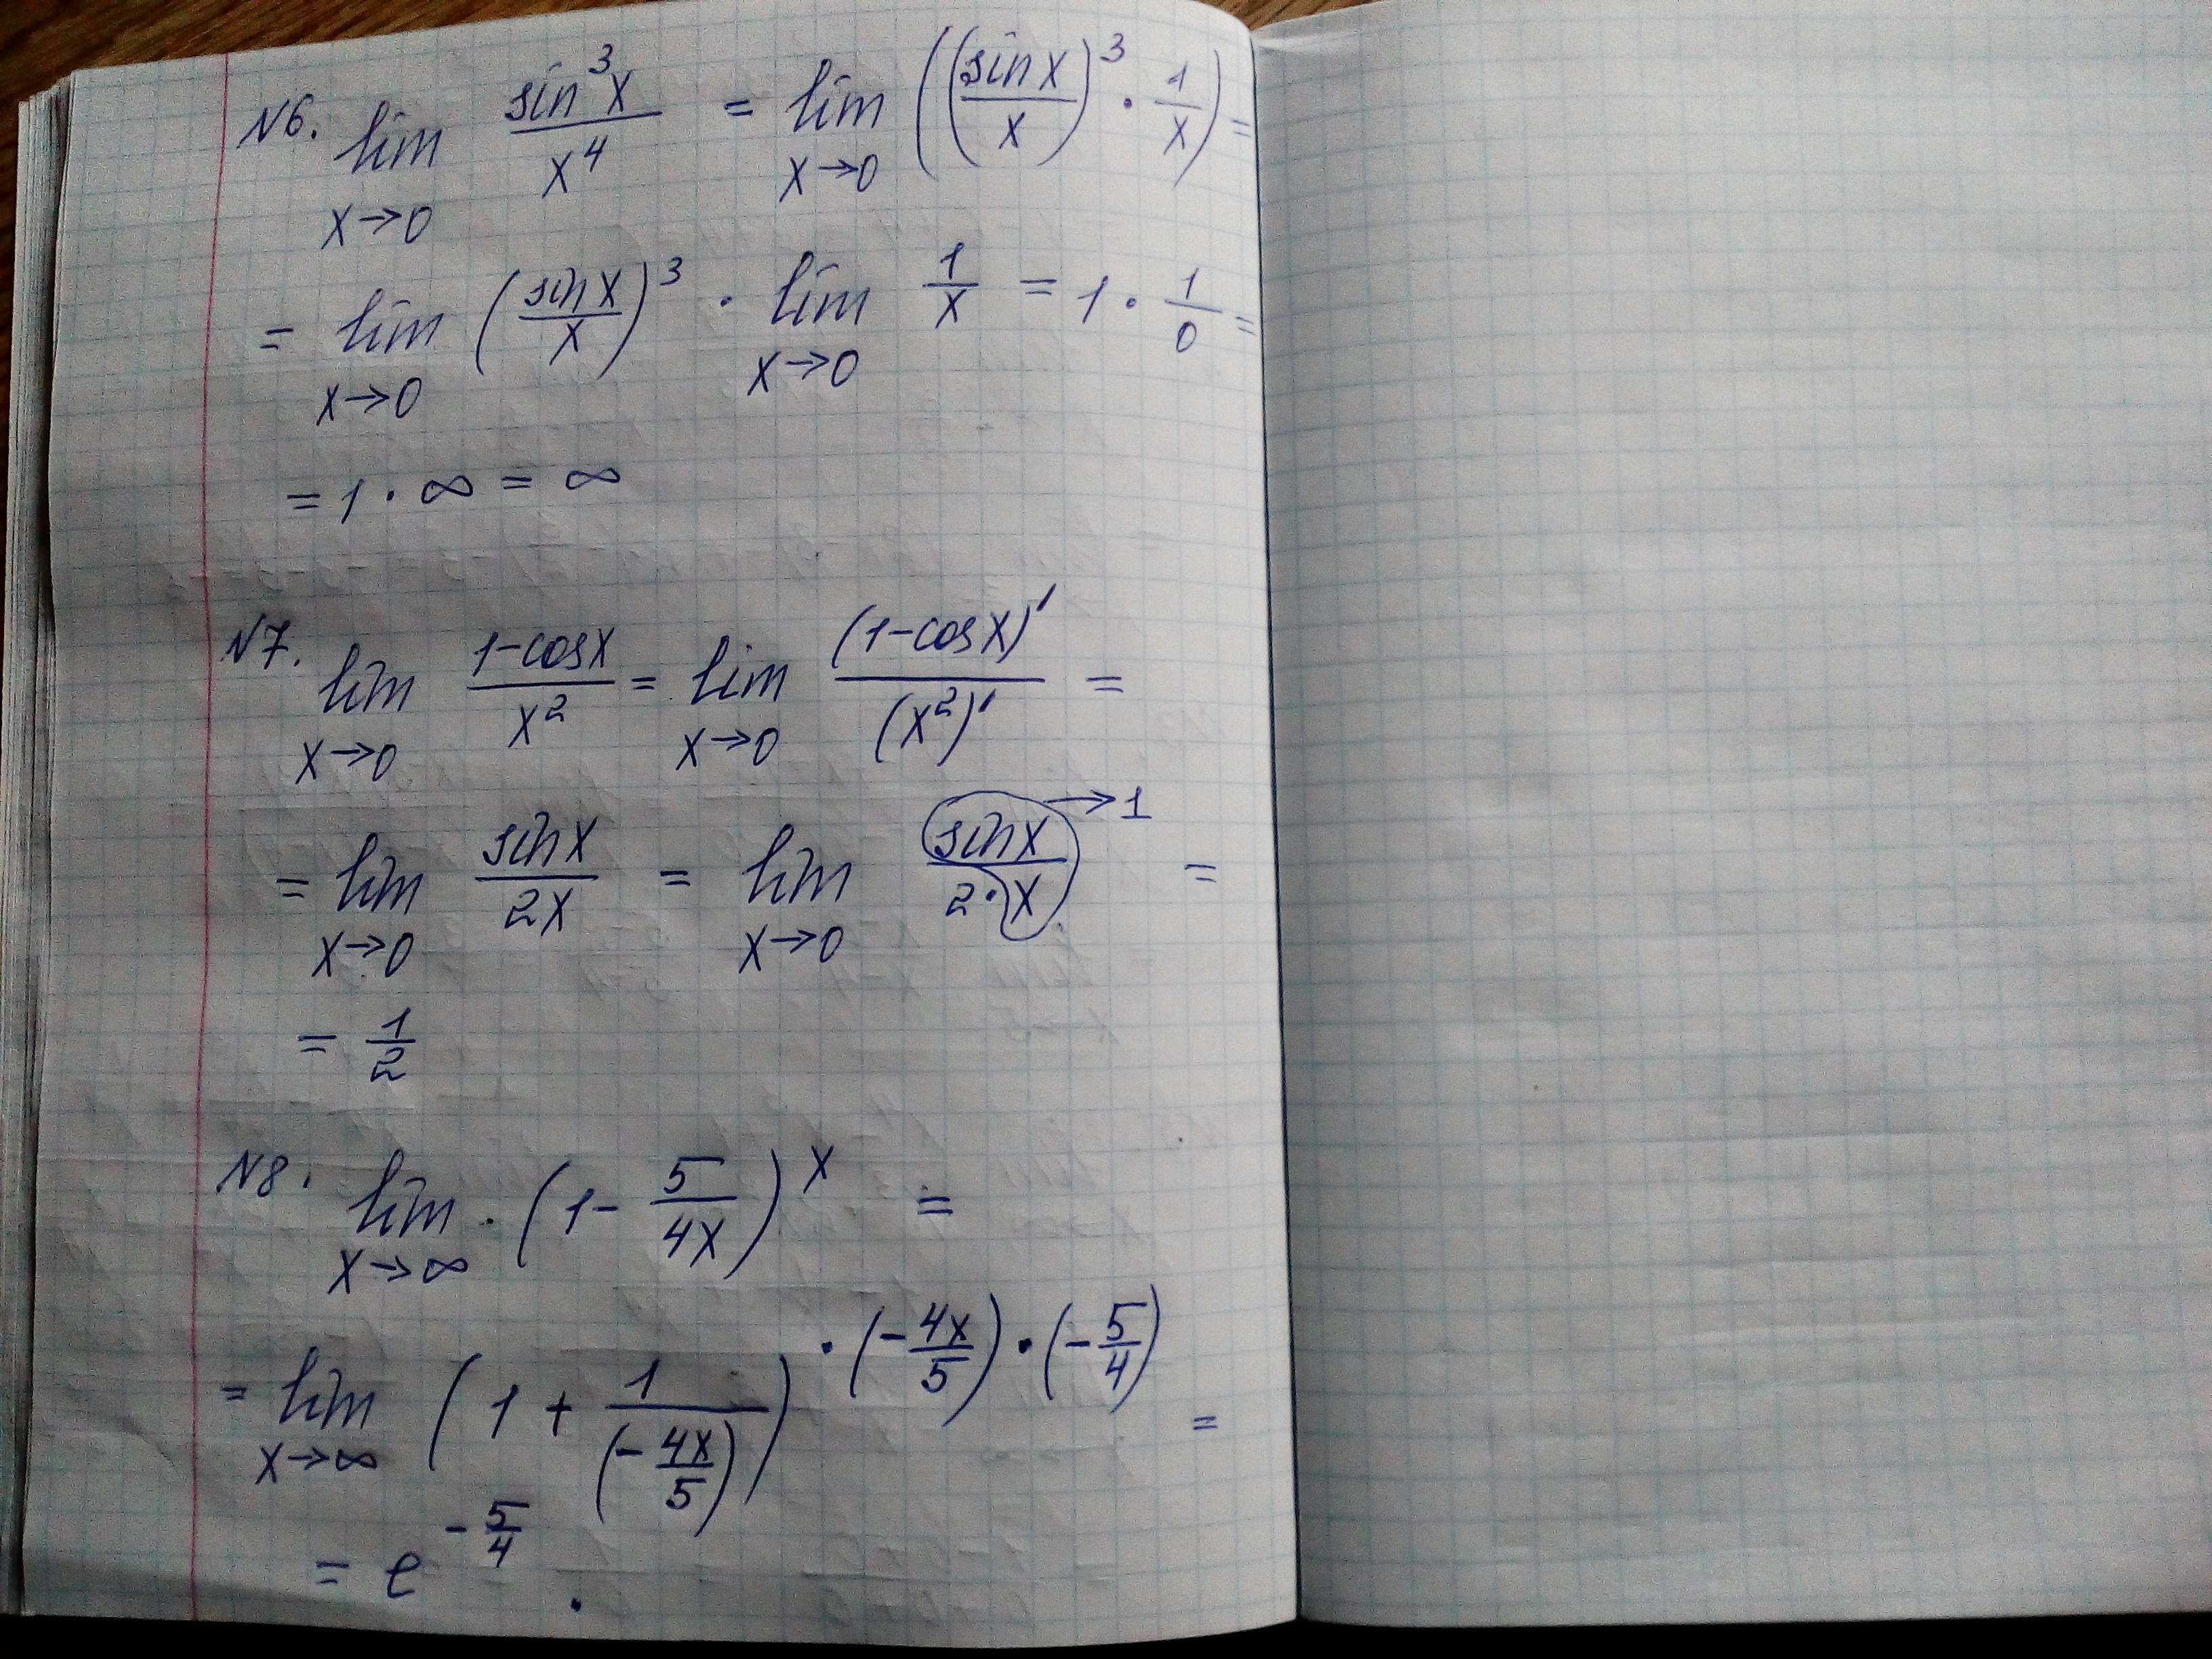 N6. lim x→0 sin³x / x⁴ = lim x→0 ((sin x / x)³ · 1/x) =
= lim x→0 (sin x / x)³ · lim x→0 1/x = 1 · 1/0 =
= 1 · ∞ = ∞
N7. lim x→0 1-cosx / x² = lim x→0 (1-cosx)' / (x²)' =
= lim x→0 sin x / 2x = lim x→0 sin x / 2·x →1 =
= 1/2
N8. lim x→∞ · (1 - 5/4x)^x =
= lim x→∞ (1 + 1/(-4x/5))^·(-4x/5)·(-5/4) =
= e^-5/4 .